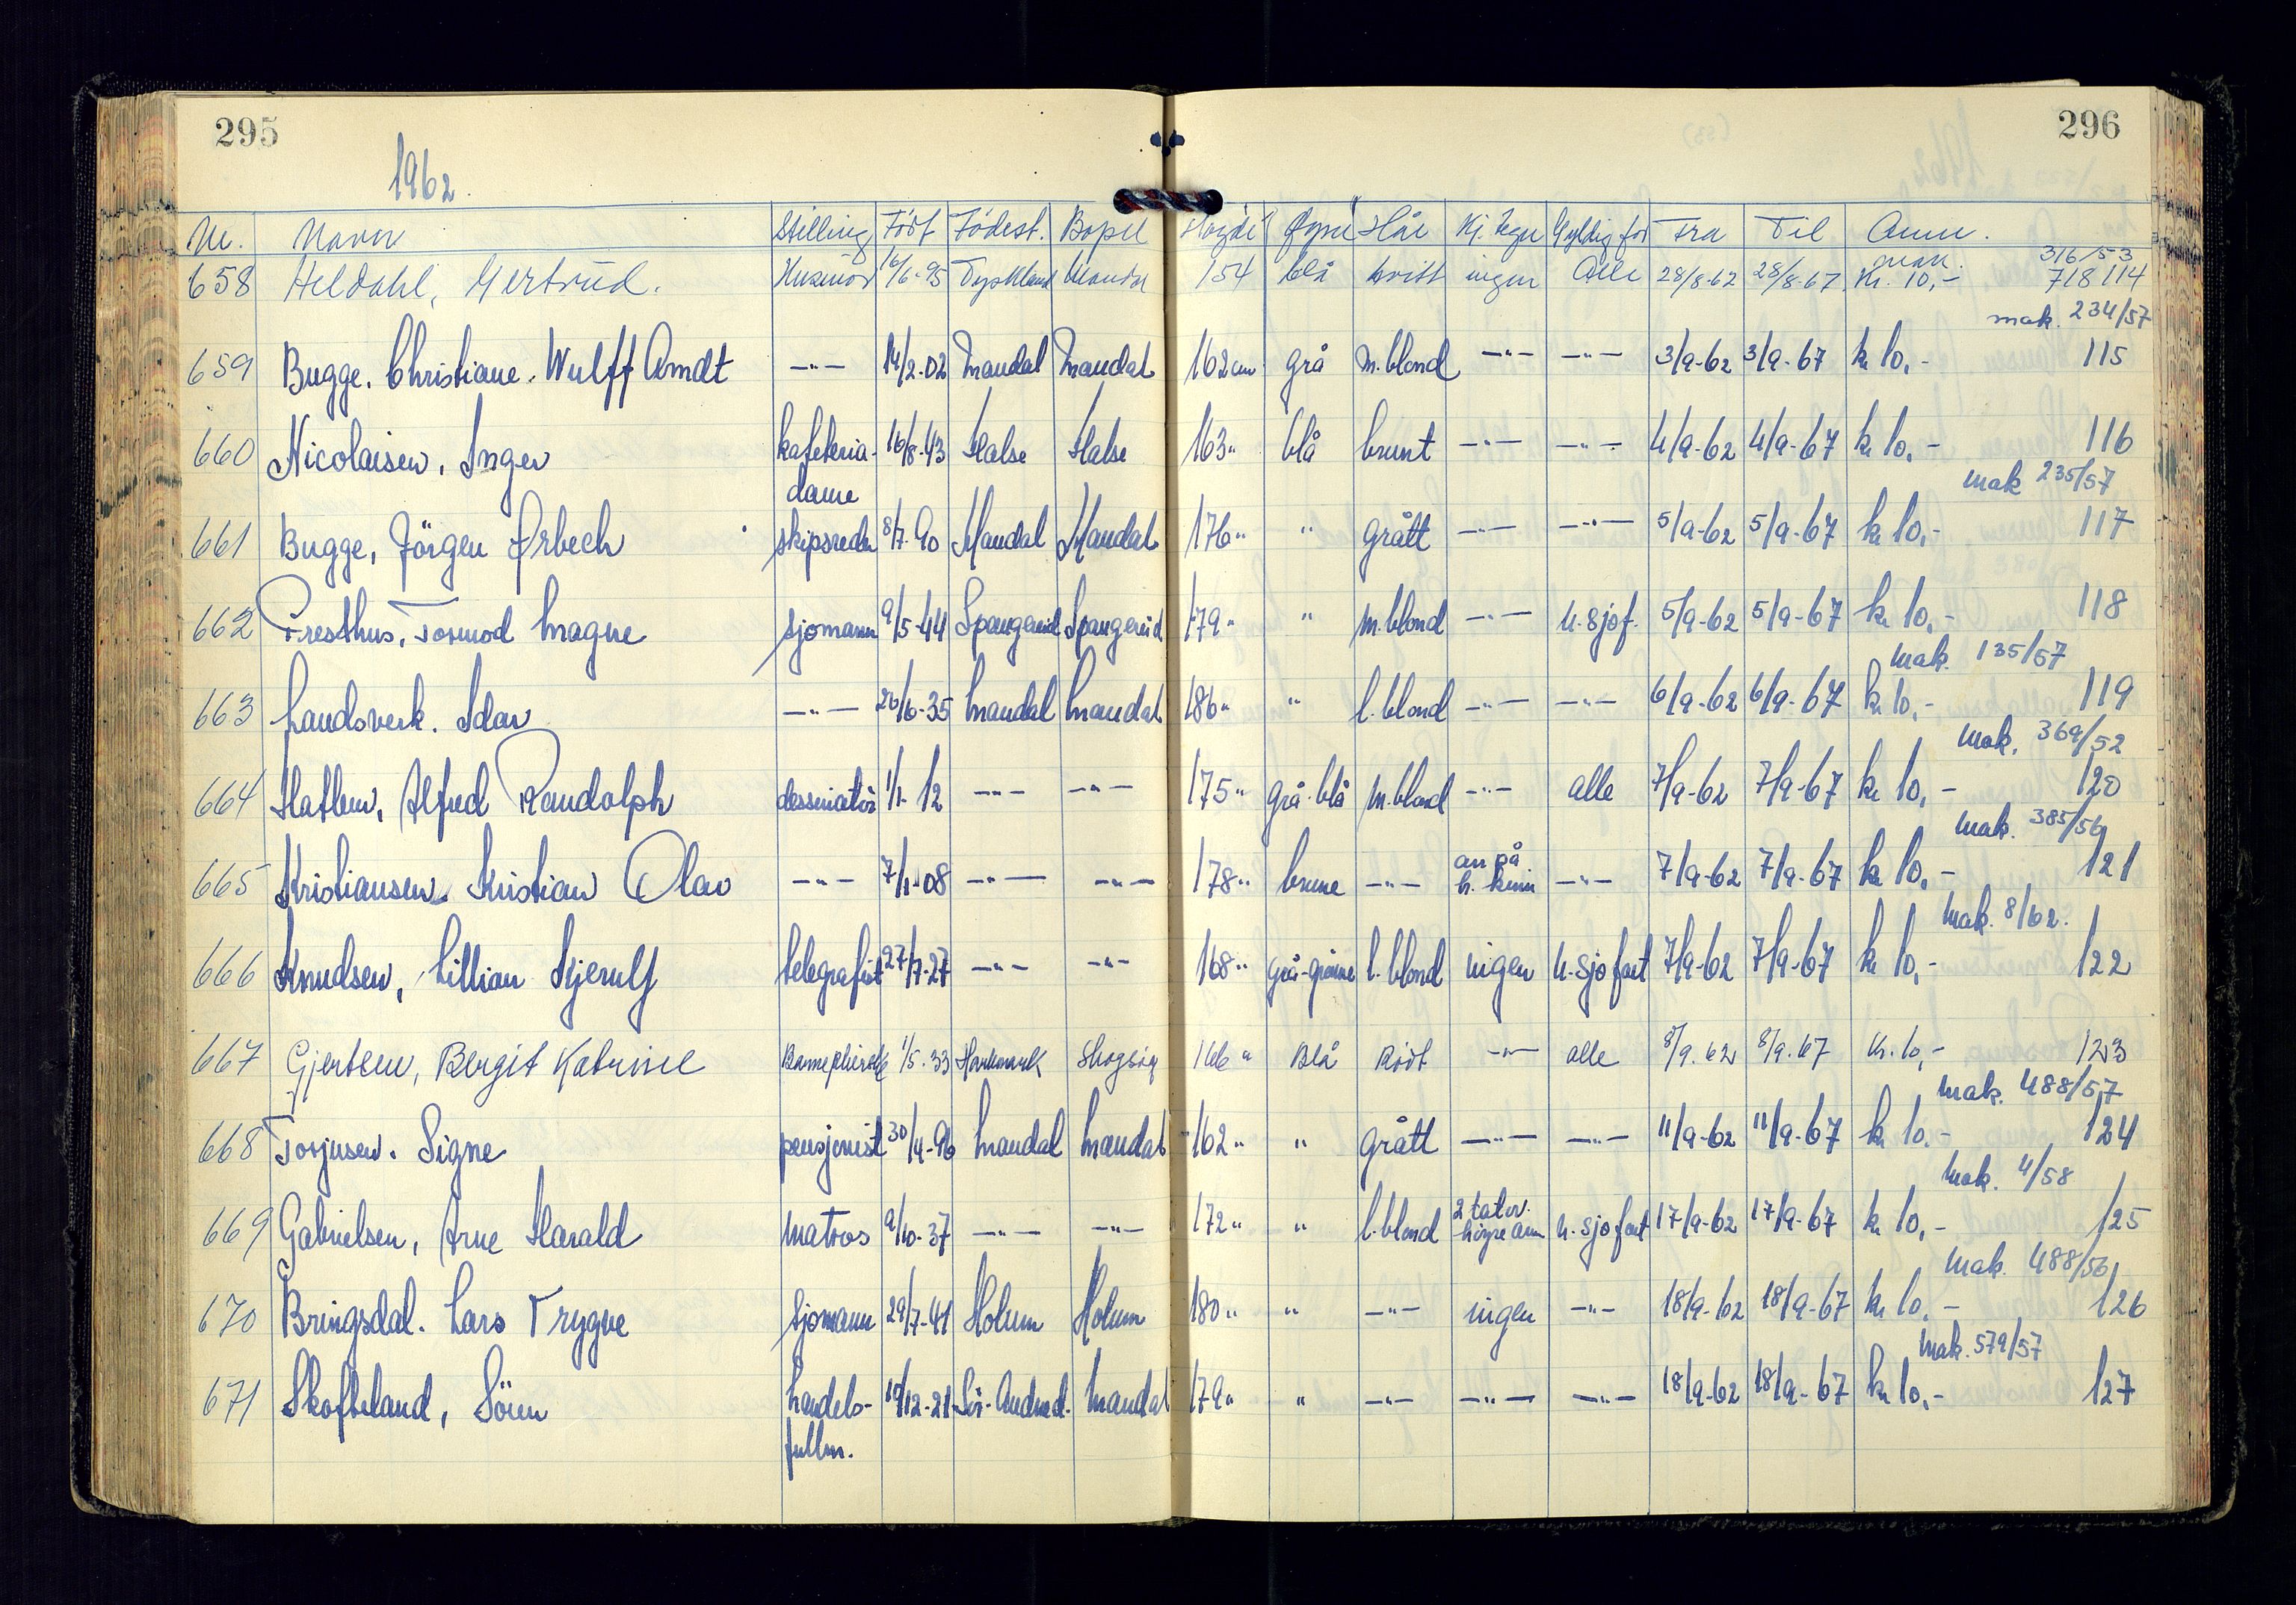 295
296
1962.
Nr. Navn Stilling Født Fødest. Bopel Høyde Øyne Hår Kj. tegn Gyldig for Fra Til Anm.
mak. 316/53
658 Heldahl, Gertrud. Husmor 16/6-95 Tyskland Mandal 154 blå hvitt ingen Alle 28/8-62 28/8-67 Kr. 10,- 718114
mak. 234/57
659 Bugge, Christiane. Wulff Arndt -"- 14/2-02 Mandal Mandal 162 cm grå m.blond -"- -"- 3/9-62 3/9-67 kr 10,- 115
660 Nicolaisen, Inger kafeteria- 16/8-43 Halse Halse 163 " blå brunt -"- -"- 4/9-62 4/9-67 kr 10,- 116
dame mak 235/57
661 Bugge, Jörgen Ørbech skipsreder 8/7-90 Mandal Mandal 176 " " grått -"- -"- 5/9-62 5/9-67 kr 10,- 117
662 Presthus, Tormod Magne sjømann 9/5-44 Spangereid Spangereid 179 " " m.blond -"- u.sjøf. 5/9-62 5/9-67 kr 10,- 118
mak. 135/57
663 Landsverk. Idar -"- 26/6-35 Mandal Mandal 186 " " l.blond -"- -"- 6/9-62 6/9-67 kr 10,- 119
mak. 369/52
664 Hatlem, Alfred Randolph dessinatör 1/1-12 -"- -"- 175 " grå-blå m.blond -"- alle 7/9-62 7/9-67 kr 10,- 120
mak. 385/56
665 Kristiansen, Kristian Olav -"- 7/1-08 -"- -"- 178 " brune -"- arr på h. kinn -"- 7/9-62 7/9-67 kr 10,- 121
mak. 8/62.
666 Knudsen, Lillian Kjerulf telegrafist 27/7-27 -"- -"- 168 " grå-grønne l.blond ingen u.sjøfart 7/9-62 7/9-67 kr 10,- 122
667 Gjertsen, Bergit Katrine Barnepleiersk 1/5-33 Harkmark Skogsøy 166 " Blå Rødt -"- alle 8/9.62 8/9.67 Kr.10,- 123
mak. 488/57
668 Torjusen. Signe pensjonist 30/4-96 Mandal Mandal 162 " " grått -"- -"- 11/9-62 11/9-67 kr 10.- 124
mak. 4/58
669 Gabrielsen, Arne Harald Matros 9/10-37 -"- -"- 172 " " l.blond 2 tatov. høyre arm u.sjøfart 17/9-62 17/9-67 kr 10,- 125
mak. 488/56
670 Bringsdal. Lars Trygve Sjømann 29/7-41 Holum Holum 180 " " -"- ingen -"- 18/9-62 18/9-67 kr 10.- 126
mak. 579/57
671 Skofteland, Sören handels- 19/12-21 Sör-Audned. Mandal 179 " " -"- -"- -"- 18/9-62 18/9-67 kr 10,- 127
fullm.